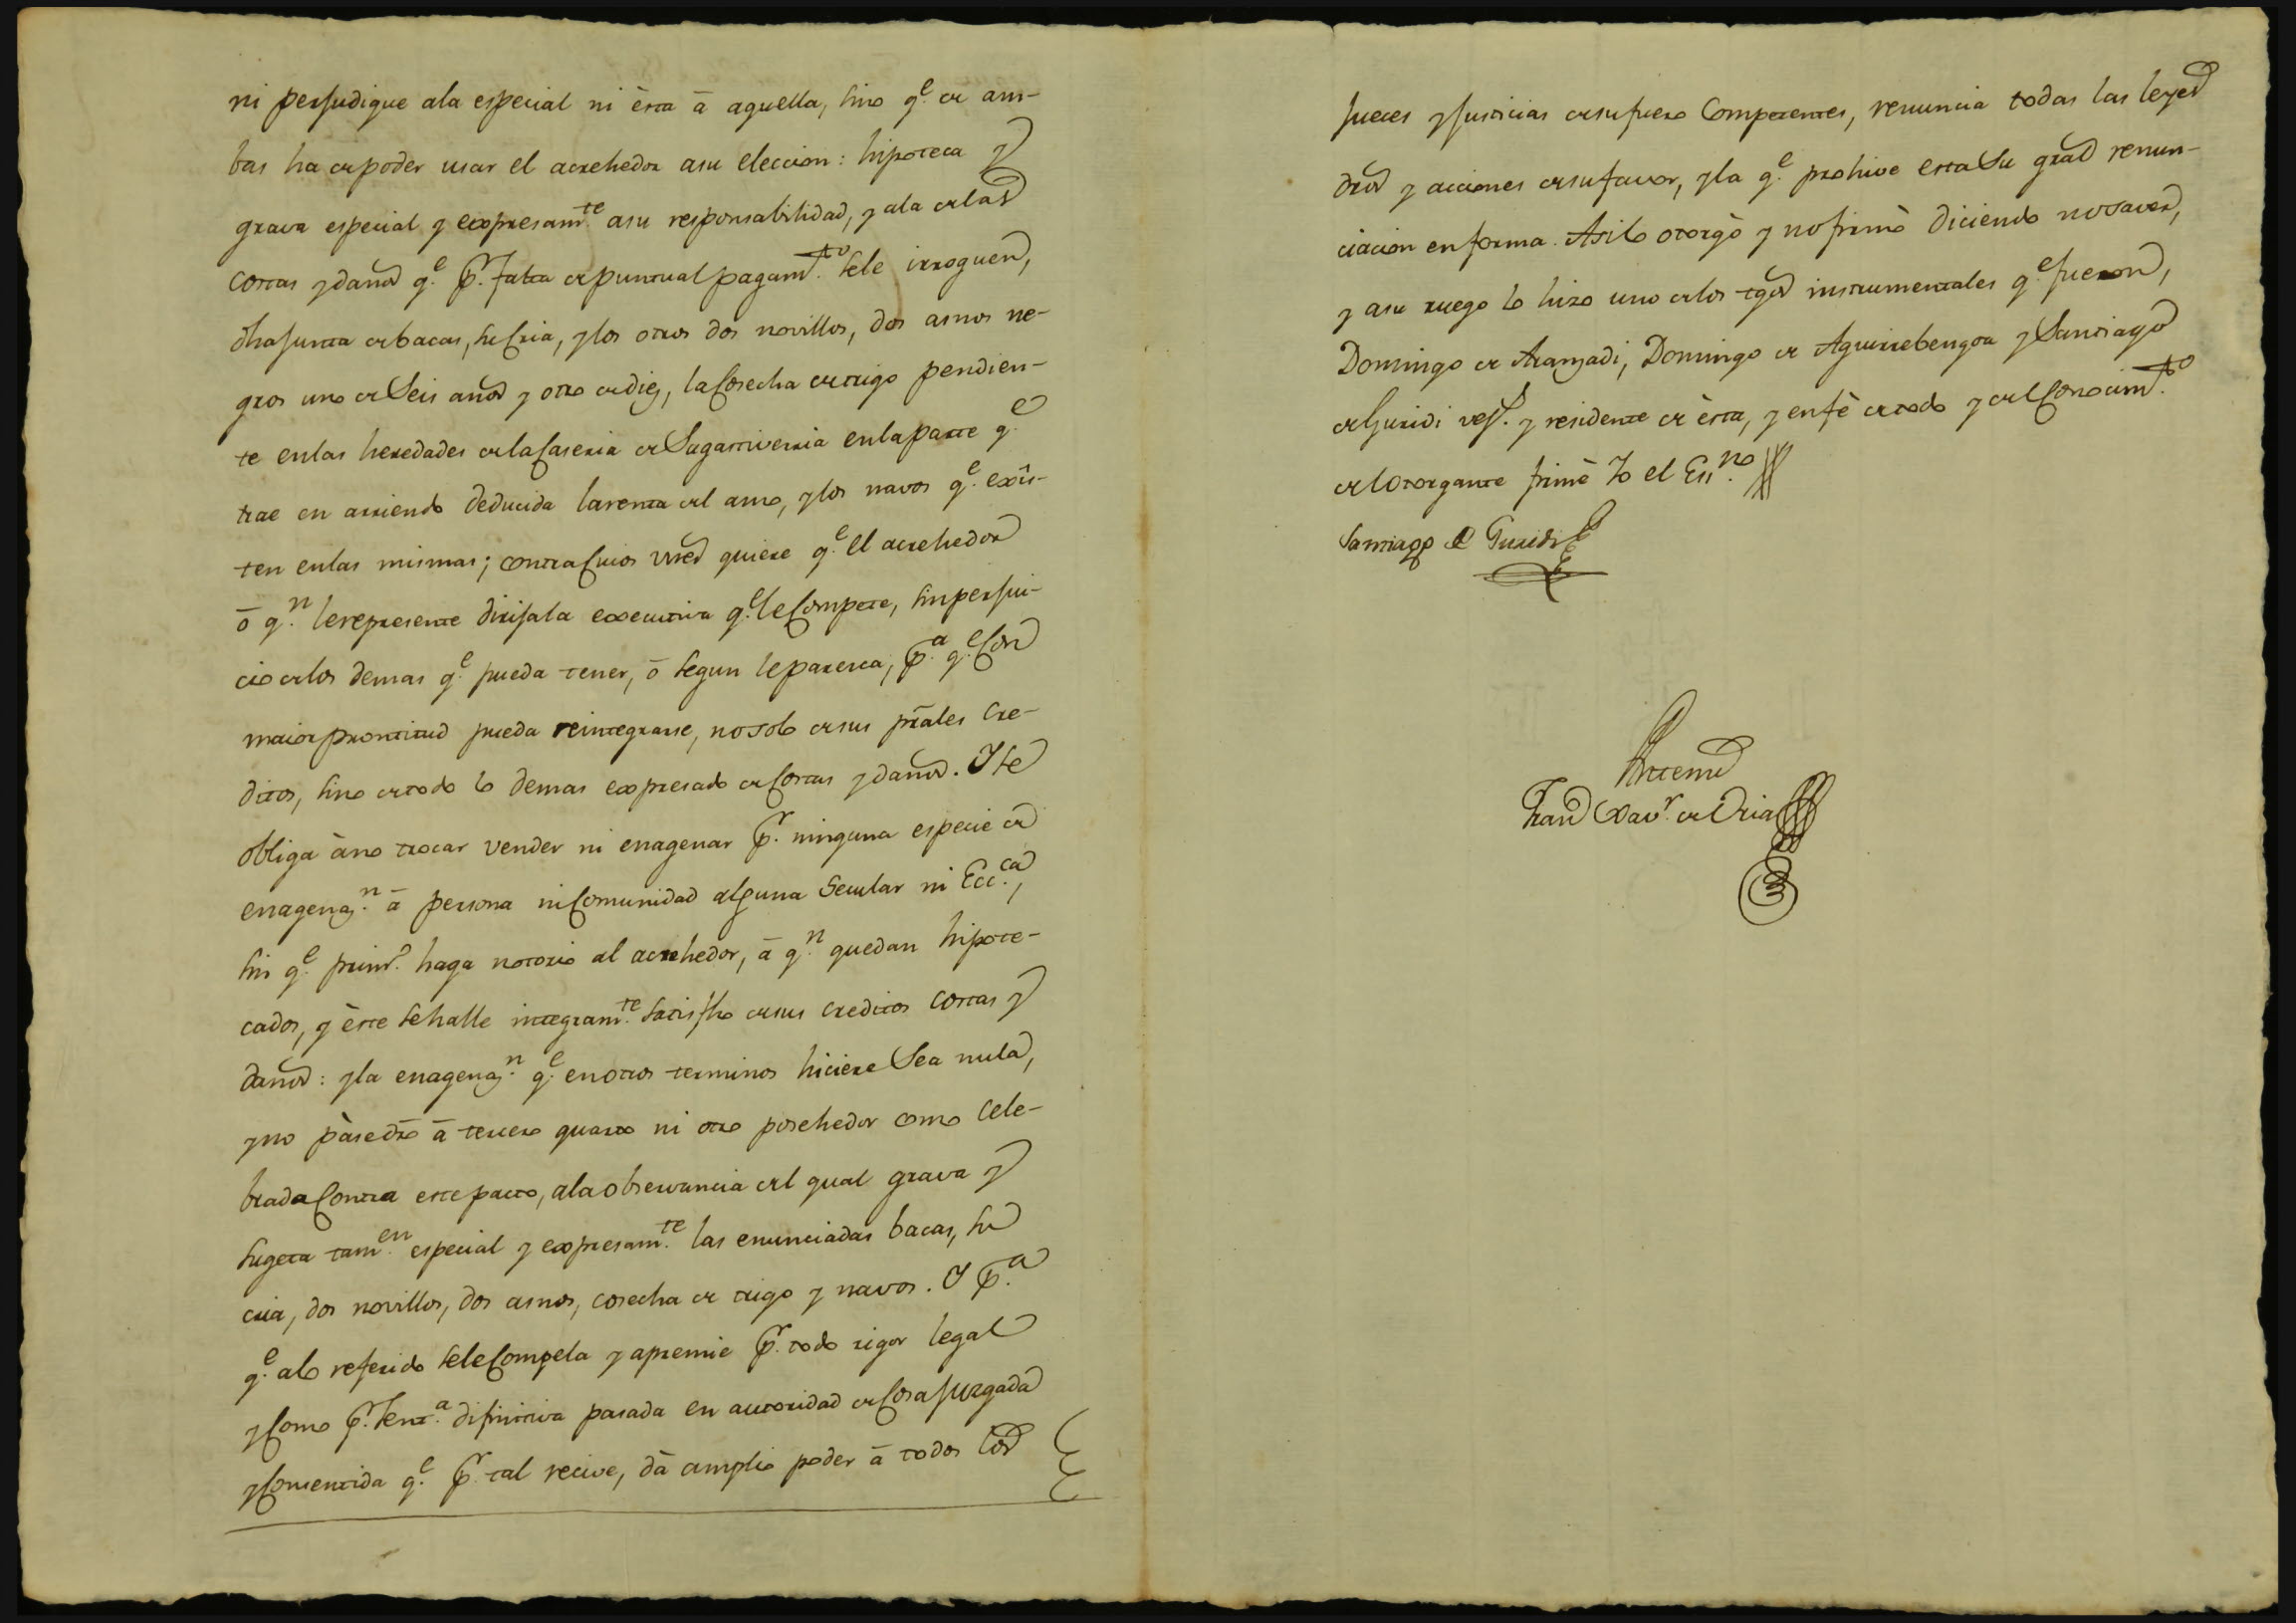 ni perjudique ala especial ni èsta ā aquella, sino q.e de am-
bas ha de poder usar el acrehedor asu eleccion: hipoteca y
grava especial y expresam.te asu responsabilidad, y ala de las
costas y daños q.e p.r falta de puntual pagam.to sele irroguen,
dha junta de bacas, su cria, y los otros dos novillos, dos asnos ne-
gros uno de seis años y otro de diez, la cosecha de trigo pendien-
te enlas heredades de la Caseria de Sagastiverria enla parte q.e
trae en arriendo deducida la renta del amo, y los navos q.e exîs-
ten enlas mismas; contra cuios vnes quiere q.e el acrehedor
ō q.n le represente dirija la executiva q.e le compete, sin perjui-
cio de los demas q.e pueda tener, ō segun le paresca, p.a q.e con
maior prontitud pueda reintegrarse, no solo de sus prāles cre-
ditos, sino de todo lo demas expresado de costas y daños. Y se
obliga àno trocar vender ni enagenar p.r ninguna especie de
enagenaz.n ā persona ni comunidad alguna secular ni Ecc.ca,
sin q.e prim.o haga notorio al acrehedor, ā q.n quedan hipote-
cados, y èste se halle integram.te satisfho de sus creditos costas y
daños: y la enagenaz.n q.e en otros terminos hiciere sea nula,
y no pàse dro ā tercero quarto ni otro posehedor como cele-
brada contra este pacto, ala observancia del qual grava y
sugeta tam.en especial y expresam.te las enunciadas bacas, su
cria, dos novillos, dos asnos, cosecha de trigo y navos. Y p.a
q.e alo referido sele compela y apremie p.r todo rigor legal
y como p.r sent.a difinitiva pasada en autoridad de cosa juzgada
y consentida q.e p.r tal recive, dà amplio poder ā todos los
jueces y justicias de su fuero competentes, renuncia todas las leyes
dros y acciones de su favor, y la q.e prohive esta su gral renun-
ciacion en forma. Asi lo otorgò y no firmò diciendo no saver,
y asu ruego lo hizo uno de los tgos instrumentales q.e fueron,
Domingo de Aranzadi, Domingo de Aguirrebengoa y Santiago
de Guridi vez.s y residente de èsta, y en fè de todo y del conocim.to
del otorgante firmè Yo el Ess.no
Santiago de Guridi
Antemi
Fran.co Xav.r de Oria